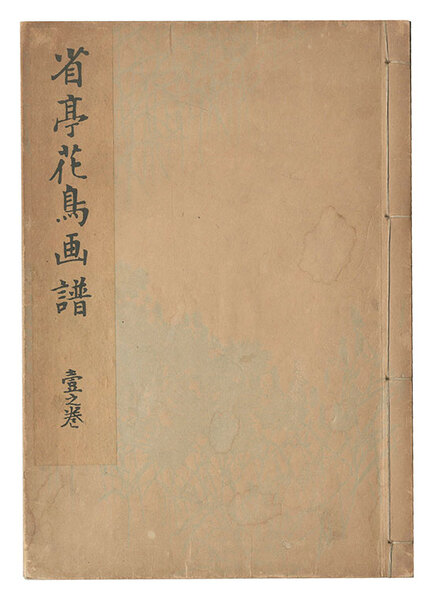 省亭花鳥画譜
壹之巻